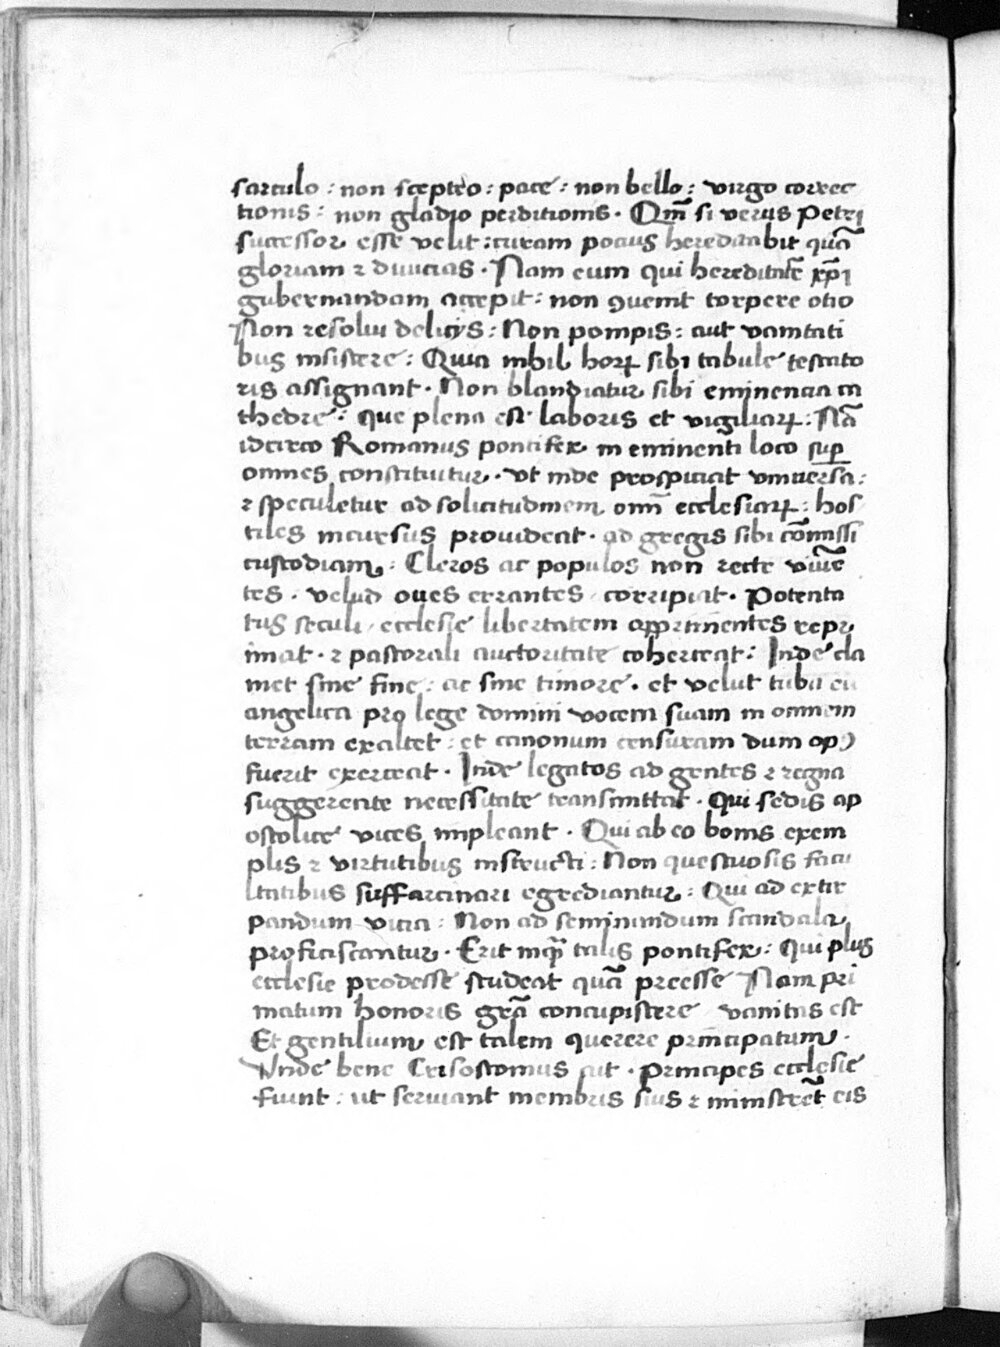 sarculo : non sceptro : pace : non bello : virgo correc
tionis : non gladio perditionis . Qm̄ si verus Petri
successor esse velit : curam potius hereditabit quā
gloriam ⁊ diuicias . Nam eum qui hereditatē xp̄i
gubernandam accepit : non ꝯuenit torpere otio
Non resolui delicijs : Non pompis : aut vanitati
bus insistere : Quia nihil horꝝ sibi tabule testato
ris assignant . Non blandiatur sibi eminencia ca
thedre : Que plena est laboris et vigiliarꝝ : Nā
idcirco Romanus pontifex in eminenti loco sup̲
omnes constituitur . vt inde prospiciat vniuersa :
⁊ speculetur ad solicitudinem omī ecclesiarꝝ : hos
tiles incursus prouideat . ad gregis sibi cōmissi
custodiam : Cleros ac populos non recte viuē
tes . velud oues errantes corripiat . Potenta
tus seculi ecclesie libertatem opprimentes repr
imat . ⁊ pastorali auctoritate coherceat : Inde cla
met sine fine : ac sine timore . et velut tuba eu
angelica pro lege domini vocem suam in omnem
terram exaltet : et canonum censuram dum opꝯ
fuerit exerceat . Inde legatos ad gentes ⁊ regna
suggerente necessitate transmittat . Qui sedis ap
ostolice vices impleant . Qui ab eo bonis exem
plis ⁊ virtutibus instructi : Non questuosis facu
ltatibus suffarcinari egrediantur : Qui ad extir
pandum vicia : Non ad seminandum scandala
proficiscantur . Erit inqͣ talis pontifex : Qui plus
ecclesie prodesse studeat quā preesse Nam pri
matum honoris grā concupiscere vanitas est
Et gentilium est talem querere principatum .
Unde bene Crisostomus ait . Principes ecclesie
fiunt : ut seruiant membris suis ⁊ ministrēt eis